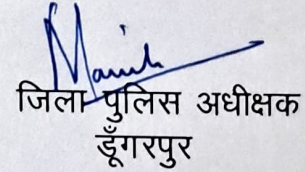 Manish
जिला पुलिस अधीक्षक
डूँगरपुर